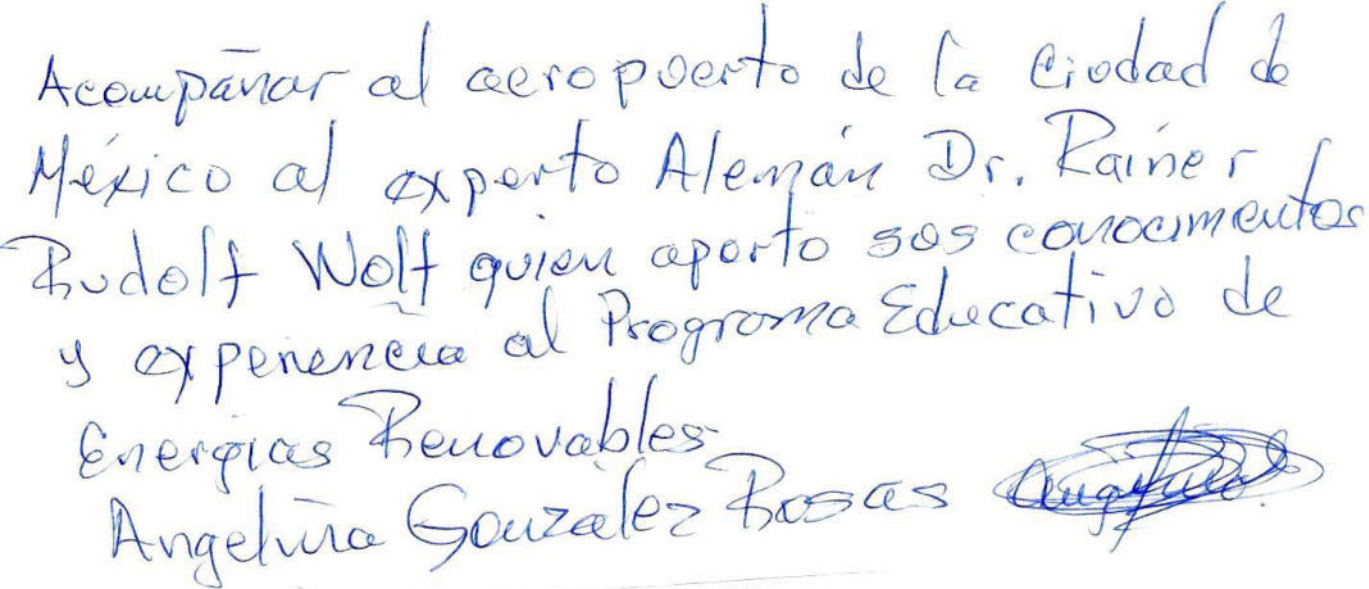 Acompañar al aeropuerto de la Ciudad de
México al experto Alemán Dr. Rainer
Rudolf Wolf quien aporto sus conocimientos
y experiencia al Programa Educativo de
Energías Renovables
Angelina González Rosas Angelina